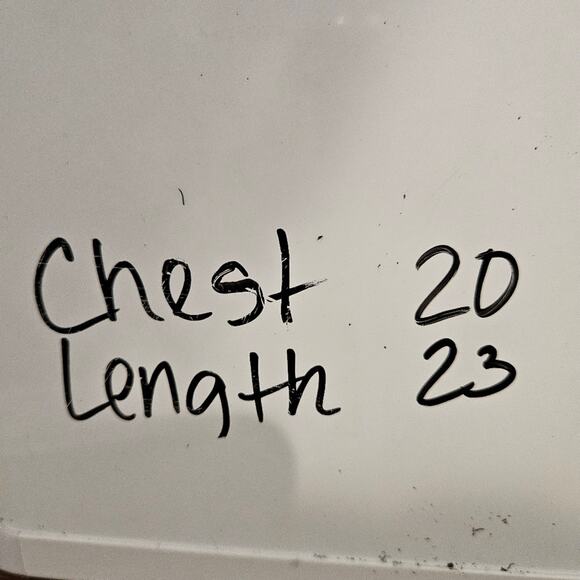 Chest 20
Length 23